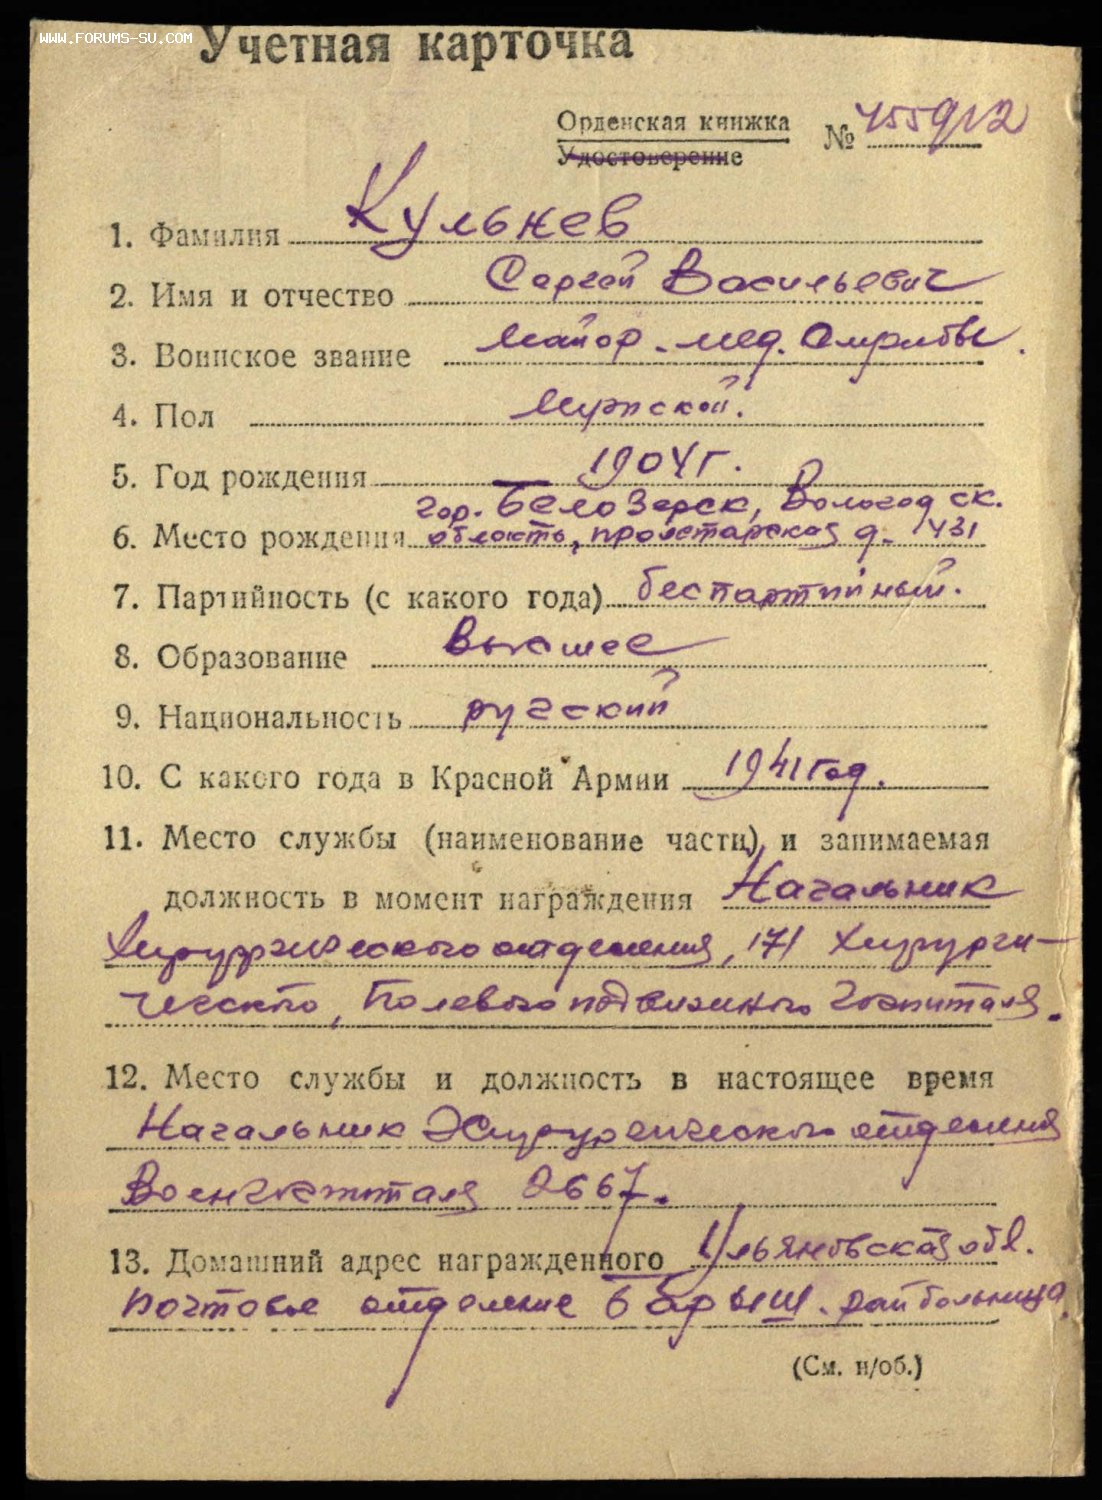 WWW.FORUMS-SU.COM
Учетная карточка
Орденская книжка
Удостоверение
№ 455912
1. Фамилия Кульнев
2. Имя и отчество Сергей Васильевич
3. Воинское звание Майор. мед. Службы.
4. Пол Мужской.
5. Год рождения 1904 г.
гор. Белозерск, Вологодск.
6. Место рождения область, пролетарская д. 31
7. Партийность (с какого года) беспартийный.
8. Образование Высшее
9. Национальность русский
10. С какого года в Красной Армии 1941 год.
11. Место службы (наименование части) и занимаемая
должность в момент награждения Начальник
Хирургического отделения, 171 Хирурги-
ческого, Полевого подвижного Госпиталя.
12. Место службы и должность в настоящее время
Начальник Хирургического отделения
Военгоспиталя 2667.
13. Домашний адрес награжденного Ульяновская обл.
почтовое отделение Барыш. райбольница.
(См. н/об.)